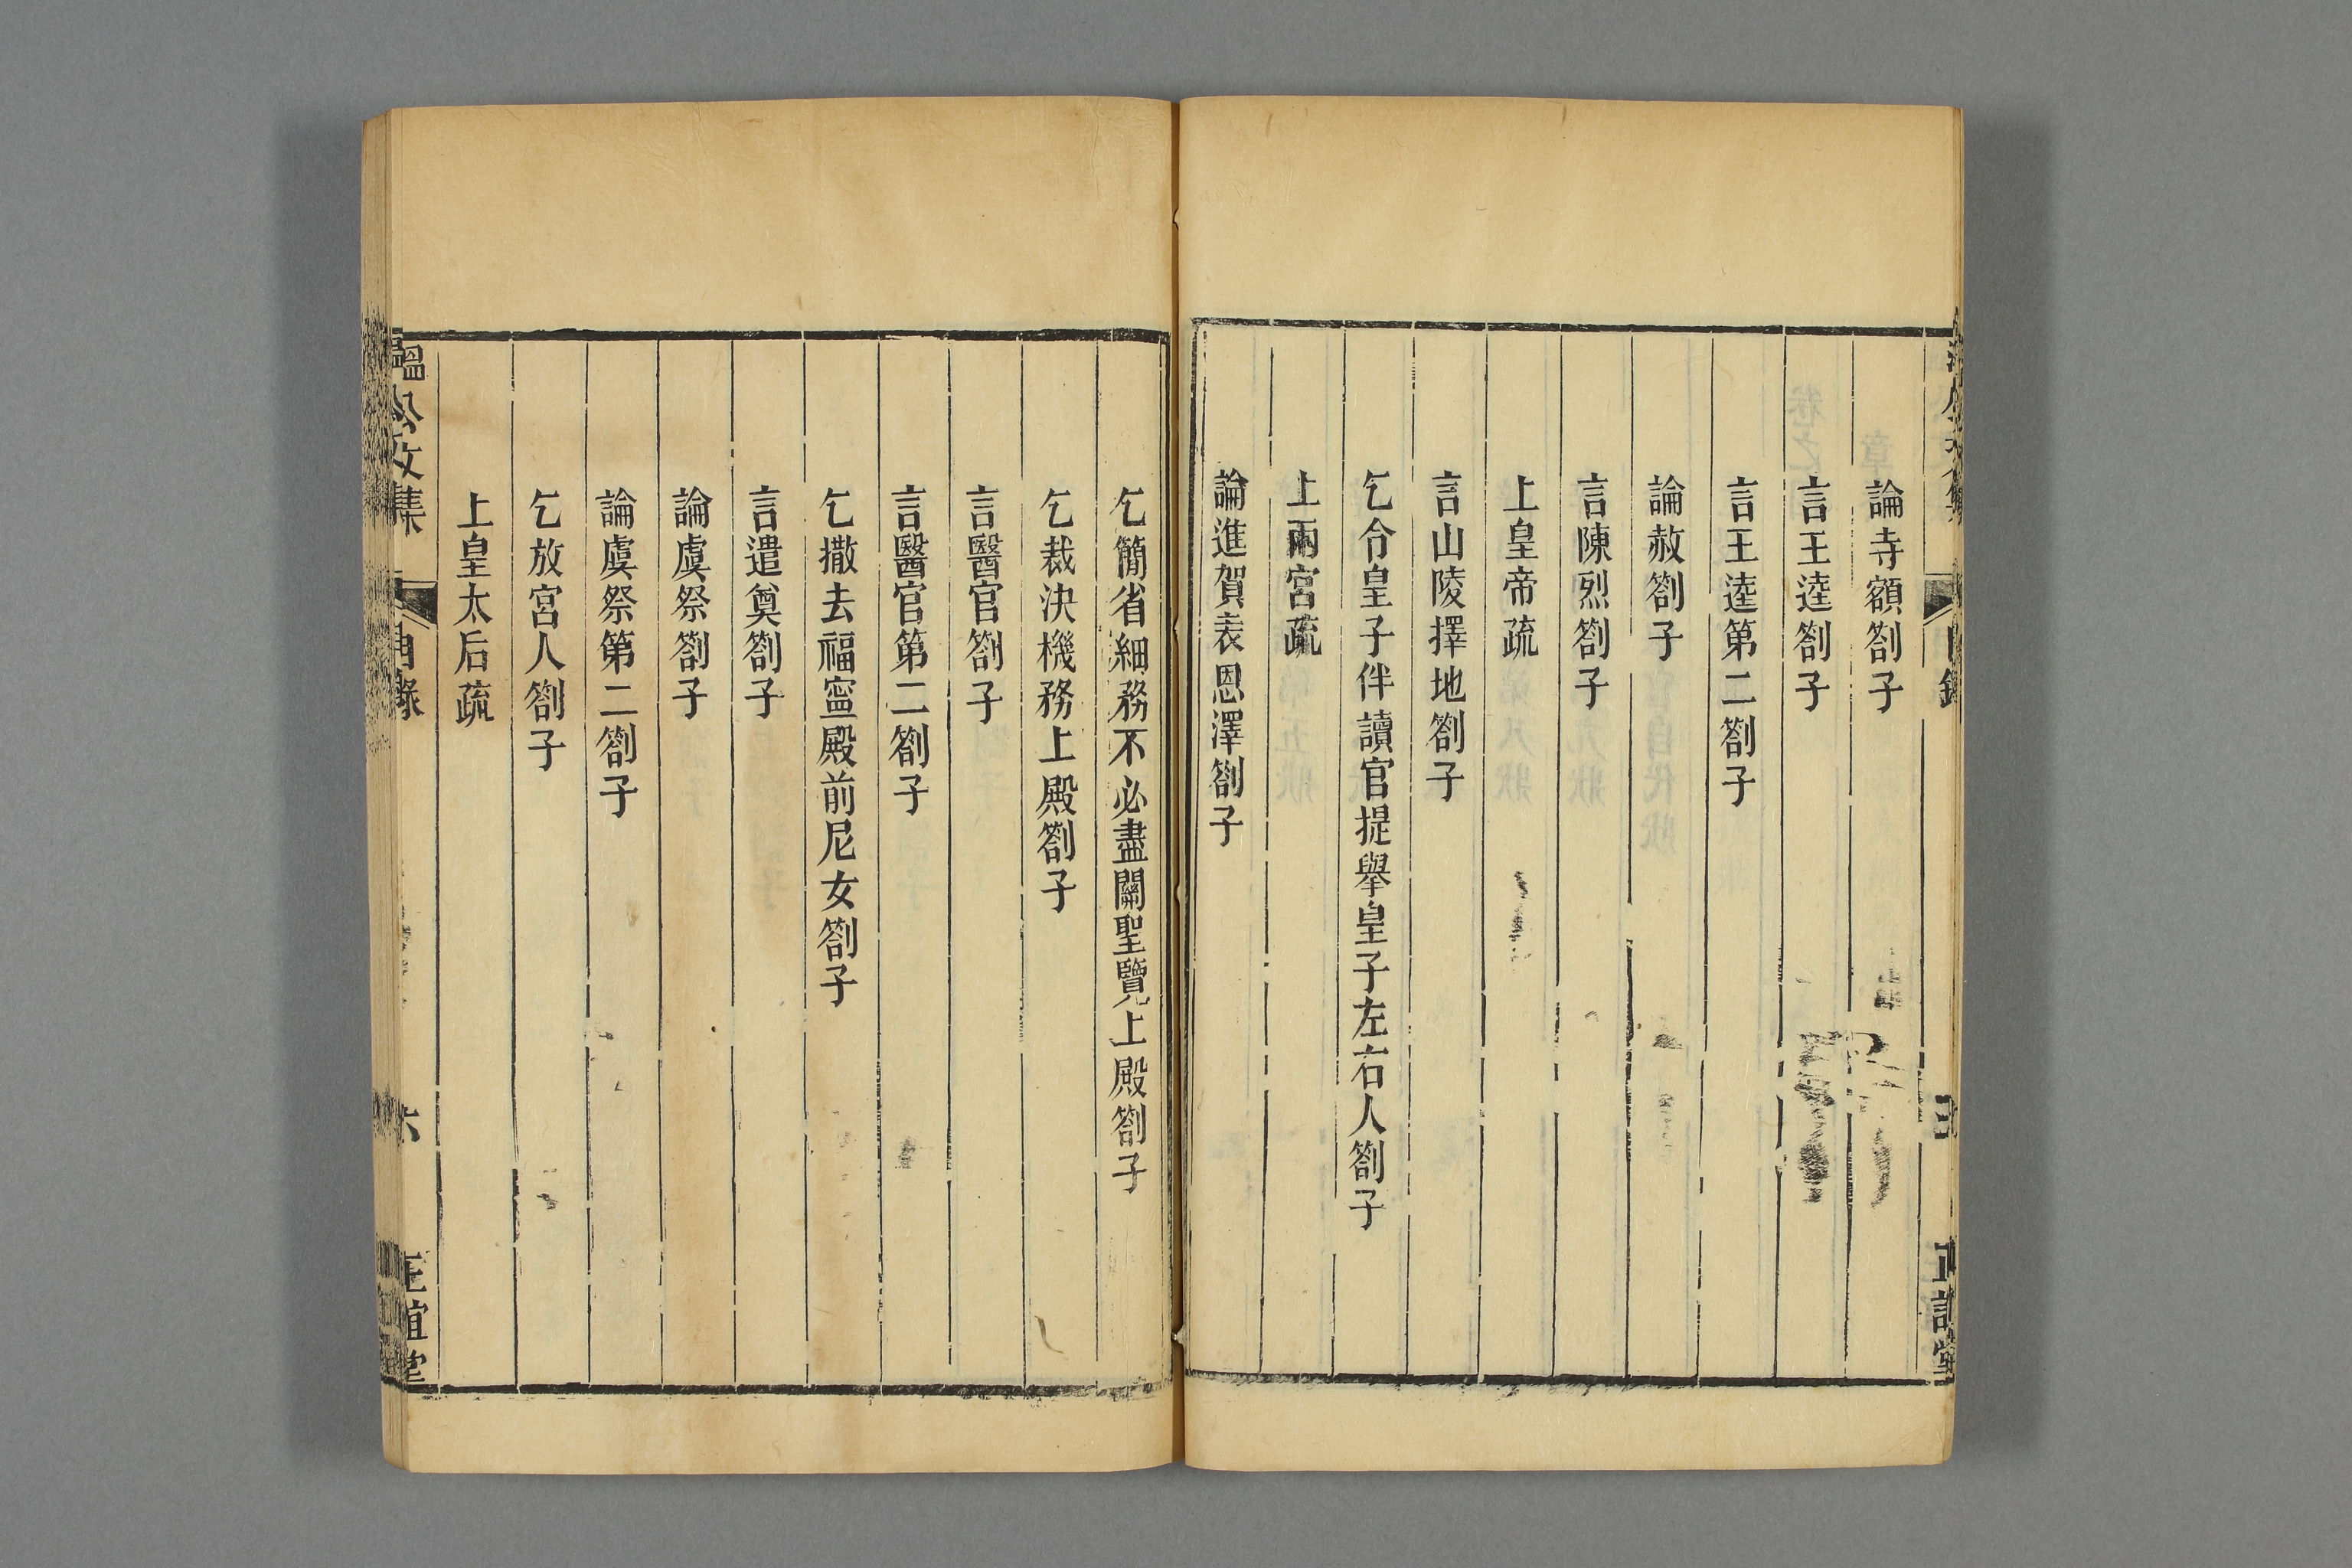 論寺額劄子
言王逵劄子
言王逵第二劄子
論赦劄子
言陳烈劄子
上皇帝疏
言山陵擇地劄子
乞令皇子伴讀官提舉皇子左右人劄子
上兩宮疏
論進賀表恩澤劄子
乞簡省細務不必盡關聖覽上殿劄子
乞裁決機務上殿劄子
言醫官劄子
言醫官第二劄子
乞撤去福寧殿前尼女劄子
言遣奠劄子
論虞祭劄子
論虞祭第二劄子
乞放宮人劄子
上皇太后疏
溫公文集 目錄 六 正誼堂